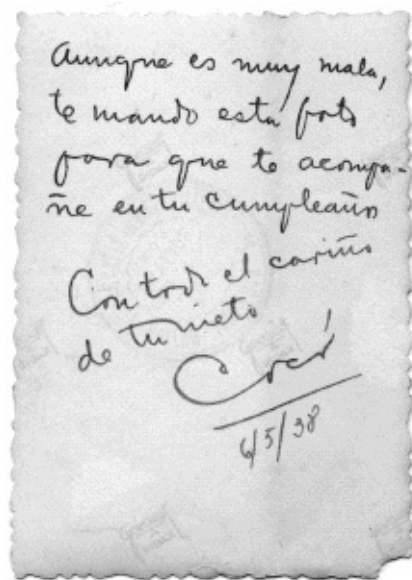 Aunque es muy mala,
te mando esta foto
para que te acompa-
ñe en tu cumpleaños
Con todo el cariño
de tu nieto
Cocó
6/5/38